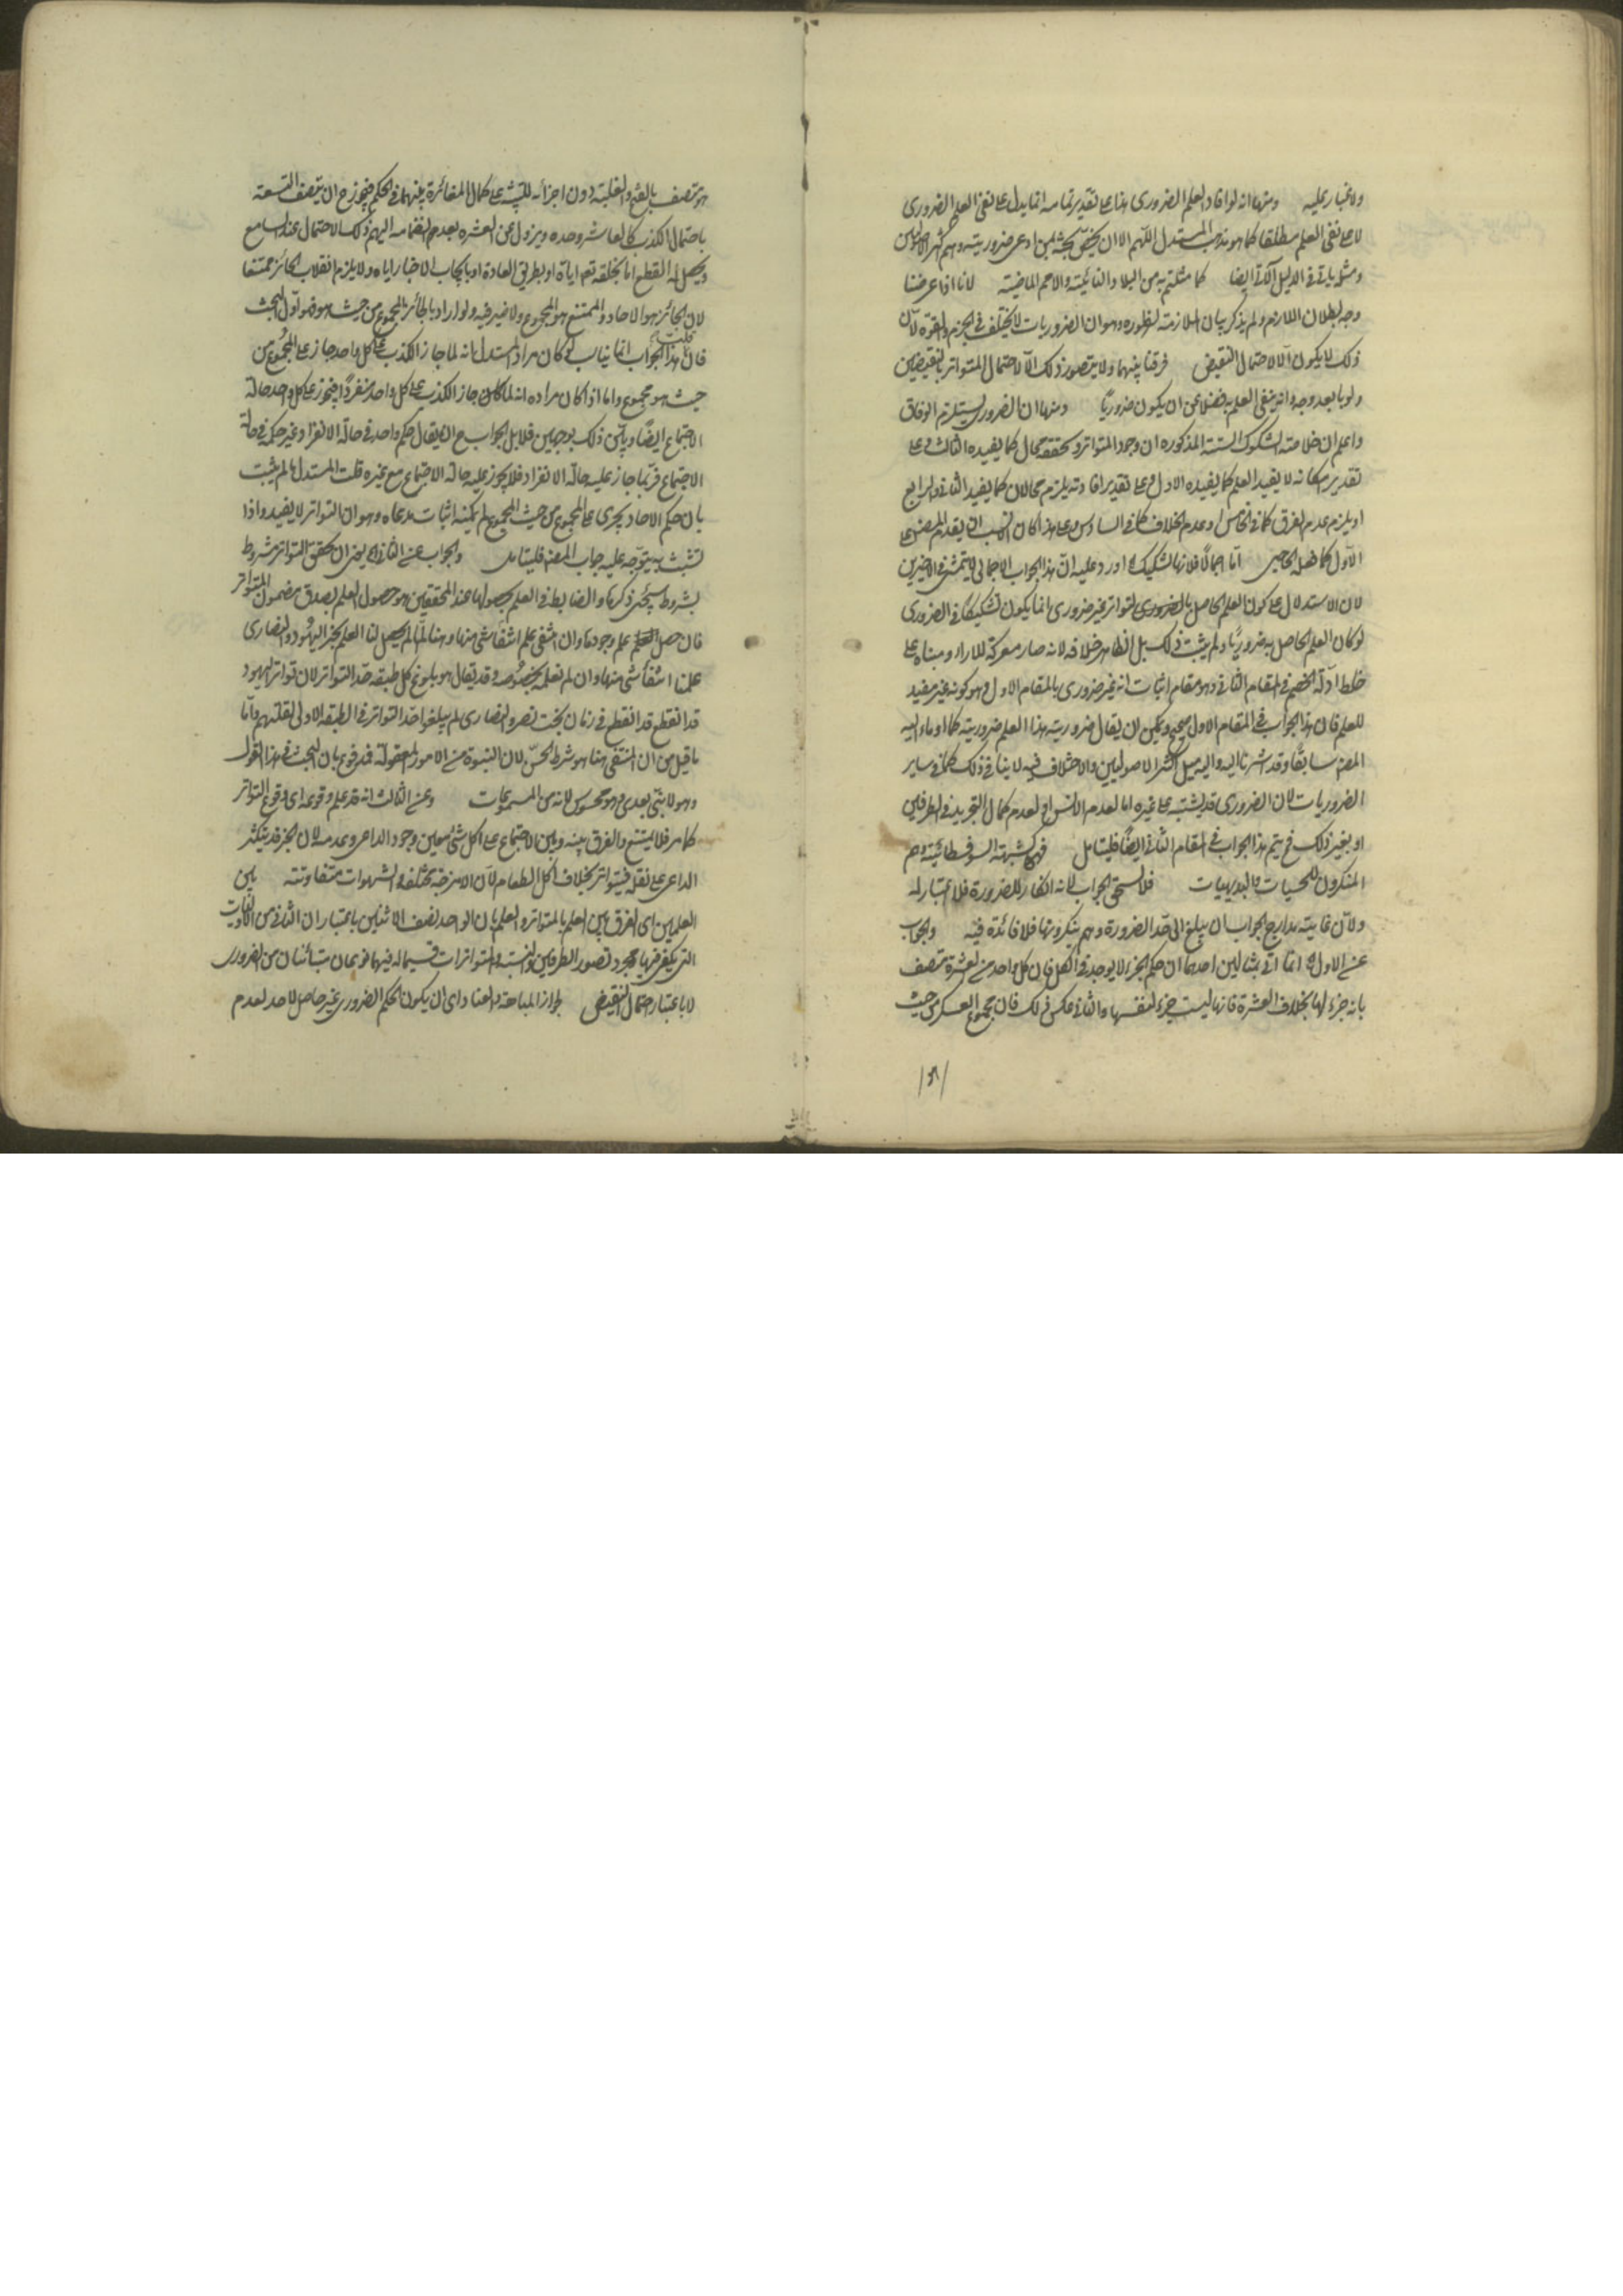 ولا غبار عليه ومنها انه لو افاد العلم الضروري هذا على تقدير تمامه انما يدل على نفي العلم الضروري
لا على نفي العلم مطلقا كما هو مذهب المستدل اللهم الا ان يخص بحثه بمن ادعى ضروريته وهم اكثر الاصوليين
ومثله ياتي في الدليل الآتي ايضا كما مثلتم به من البلاد النائية والامم الماضية لانا اذا عرضنا
وجه بطلان اللازم ولم يذكر بيان الملازمة لظهوره وهو ان الضروريات لا يختلف في الجزم والقوة لان
ذلك لا يكون الا لاحتمال النقيض فرقنا بينهما ولا يتصور ذلك الا لاحتمال المتواتر للنقيضين
ولو بابعد وجه وانه ينفي العلم به فضلا عن ان يكون ضروريا ومنها ان الضروري يستلزم الوفاق
واعلم ان خلاصة الشكوك الستة المذكوره ان وجود المتواتر وتحققه محال كما يفيده الثالث وعلى
تقدير امكانه لا يفيد العلم كما يفيده الاول وعلى تقدير افادته يلزم محالان كما يفيد الثاني والرابع
او يلزم عدم الفرق كما في الخامس او عدم الخلاف كما في السادس وعلى هذا كان انسب ان يقدم المصنف على
الاول كما فعله الحاجبي اما اجمالا فلانها تشكيك اورد عليه ان هذا الجواب الاجمالي لا يتمشى في الاخيرين
لان الاستدلال على كون العلم الحاصل بالتواتر غير ضروري انما يكون تشكيكا في الضروري
لو كان العلم الحاصل به ضروريا ولم يثبت ذلك بل الظاهر خلافه لانه صار معركة للاراء ومبناه على
خلط ادلة الخصم في المقام الثاني وهو مقام اثبات انه غير ضروري بالمقام الاول وهو كونه غير مفيد
للعلم فان هذا الجواب في المقام الاول صحيح ويمكن ان يقال ضرورية هذا العلم ضرورية كما اوماء اليه
المصنف سابقا وقد اشرنا اليه واليه ميل اكثر الاصوليين والاختلاف فيه لا ينافي ذلك كما في ساير
الضروريات لان الضروري قد يشتبه على غيره اما لعدم الانس او لعدم كمال التجريد في الطرفين
او بغير ذلك فح يتم هذا الجواب في المقام الثاني ايضا فليتامل فهي كشبهة السوفسطائية وهم
المنكرون للحسيات والبديهيات فلا يستحق الجواب لانه انكار للضرورة فلا اعتبار له
ولان غاية مدارج الجواب ان يبلغ الى حد الضرورة وهم ينكرونها فلا فائدة فيه والجواب
عن الاول انما اتى بمثالين احدهما ان حكم الجزء لا يوجد في الكل فان كل واحد من العشرة متصف
بانه جزء لها بخلاف العشرة فانها ليست جزء لنفسها والثاني عكس ذلك فان مجموع العسكر من حيث
هو متصف بالفتح والغلبة دون اجزائه للتنبيه على كمال المغائرة بينهما في الحكم فيجوز ح ان يتصف التسعة
باحتمال الكذب كالعاشر وحده ويزول عن العشره بعد انضمامه اليهم ذلك الاحتمال عند السامع
ويحصل له القطع اما بخلقه تعالى اياه او بطريق العادة او بايجاب الاخبار اياه ولا يلزم انقلاب الجائز ممتنعا
لان الجائز هو الاحاد والممتنع هو المجموع ولا ضير فيه ولو اراد بالجائز المجموع من حيث هو فهو اول البحث
فان قلت هذا الجواب انما يناسب لو كان مراد المستدل انه لما جاز الكذب على كل واحد جاز على المجموع من
حيث هو مجموع واما اذا كان مراده انه لما جاز الكذب على كل واحد منفردا فيجوز على كل واحد حالة
الاجتماع ايضا ويأتي ذلك بوجهين فلا بل الجواب ح ان يقال حكم واحد في حالة الانفراد غير حكمه في حالة
الاجتماع فربما جاز عليه حالة الانفراد فلا يجوز عليه حالة الاجتماع مع غيره قلت المستدل ما لم يثبت
بان حكم الاحاد يجري على المجموع من حيث المجموع لم يمكنه اثبات مدعاه وهو ان التواتر لا يفيد واذا
تشبث به يتوجه عليه جواب المصنف فليتامل والجواب عن الثاني ان تحقق التواتر مشروط
بشروط سيجئ ذكرها والضابط في العلم بحصولها عند المحققين هو حصول العلم بصدق مضمون المتواتر
فان حصل علم وجودها وان انتفى علم انتفاء شيء منها وهنا لما لم يحصل لنا العلم بخبر اليهود والنصارى
علمنا انتفاء شيء منها وان لم نعلمه بخصوصه وقد يقال هو بلوغ كل طبقة حد التواتر لان تواتر اليهود
قد انقطع في زمان بخت نصر والنصارى لم يبلغوا حد التواتر في الطبقة الاولى لقلتهم واما
ما قيل من ان المنتفي هنا هو شرط الحس لان النبوة من الامور المعقولة فمدفوع بان البحث في هذا القول
وهو لا نبي بعدي وهو محسوس لانه من المسموعات وعن الثالث انه قد علم وقوعه اي وقوع التواتر
كما مر فلا يمتنع والفرق بينه وبين الاجتماع على اكل شئ معين وجود الداعي وعدمه لان الخبر قد يتكثر
الداعي على نقله فيتواتر بخلاف اكل الطعام لان الامزجة مختلفة والشهوات متفاوتة بين
العلمين اي الفرق بين العلم بالمتواتر والعلم بان الواحد نصف الاثنين باعتبار ان الثاني من الاوليات
التي يكفي فيها مجرد تصور الطرفين والنسبة والمتواترات قسيمة لها فيهما نوعان متبائنان من الضروري
لا باعتبار احتمال النقيض لجواز المباهتة والعناد اي ان يكون الحكم الضروري غير حاصل لاحد لعدم